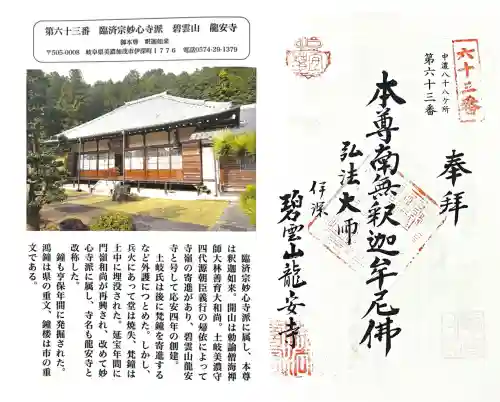 第六十三番　臨済宗妙心寺派　碧雲山　龍安寺
御本尊　釈迦如来
〒505-0008　岐阜県美濃加茂市伊深町1776　電話0574-29-1379
臨済宗妙心寺派に属し、本尊
は釈迦如来。開山は勅諭僧海禅
師大林善育大和尚。土岐美濃守
四代源朝臣義行の帰依によって
寺領の寄進があり、碧雲山龍安
寺と号して応安四年の創建。
土岐氏は後に梵鐘を寄進する
など外護につとめた。しかし、
兵火にあって堂は焼失、梵鐘は
土中に埋没された。延宝年間に
門嶺和尚が再興され、改めて妙
心寺派に属し、寺名も龍安寺と
改称した。
鐘も享保年間に発掘された。
鴻鐘は県の重文、鐘楼は市の重
文である。
六十三番
中濃八十八ヶ所
第六十三番
奉拝
本尊南無釈迦牟尼佛
弘法大師
伊深
碧雲山龍安寺